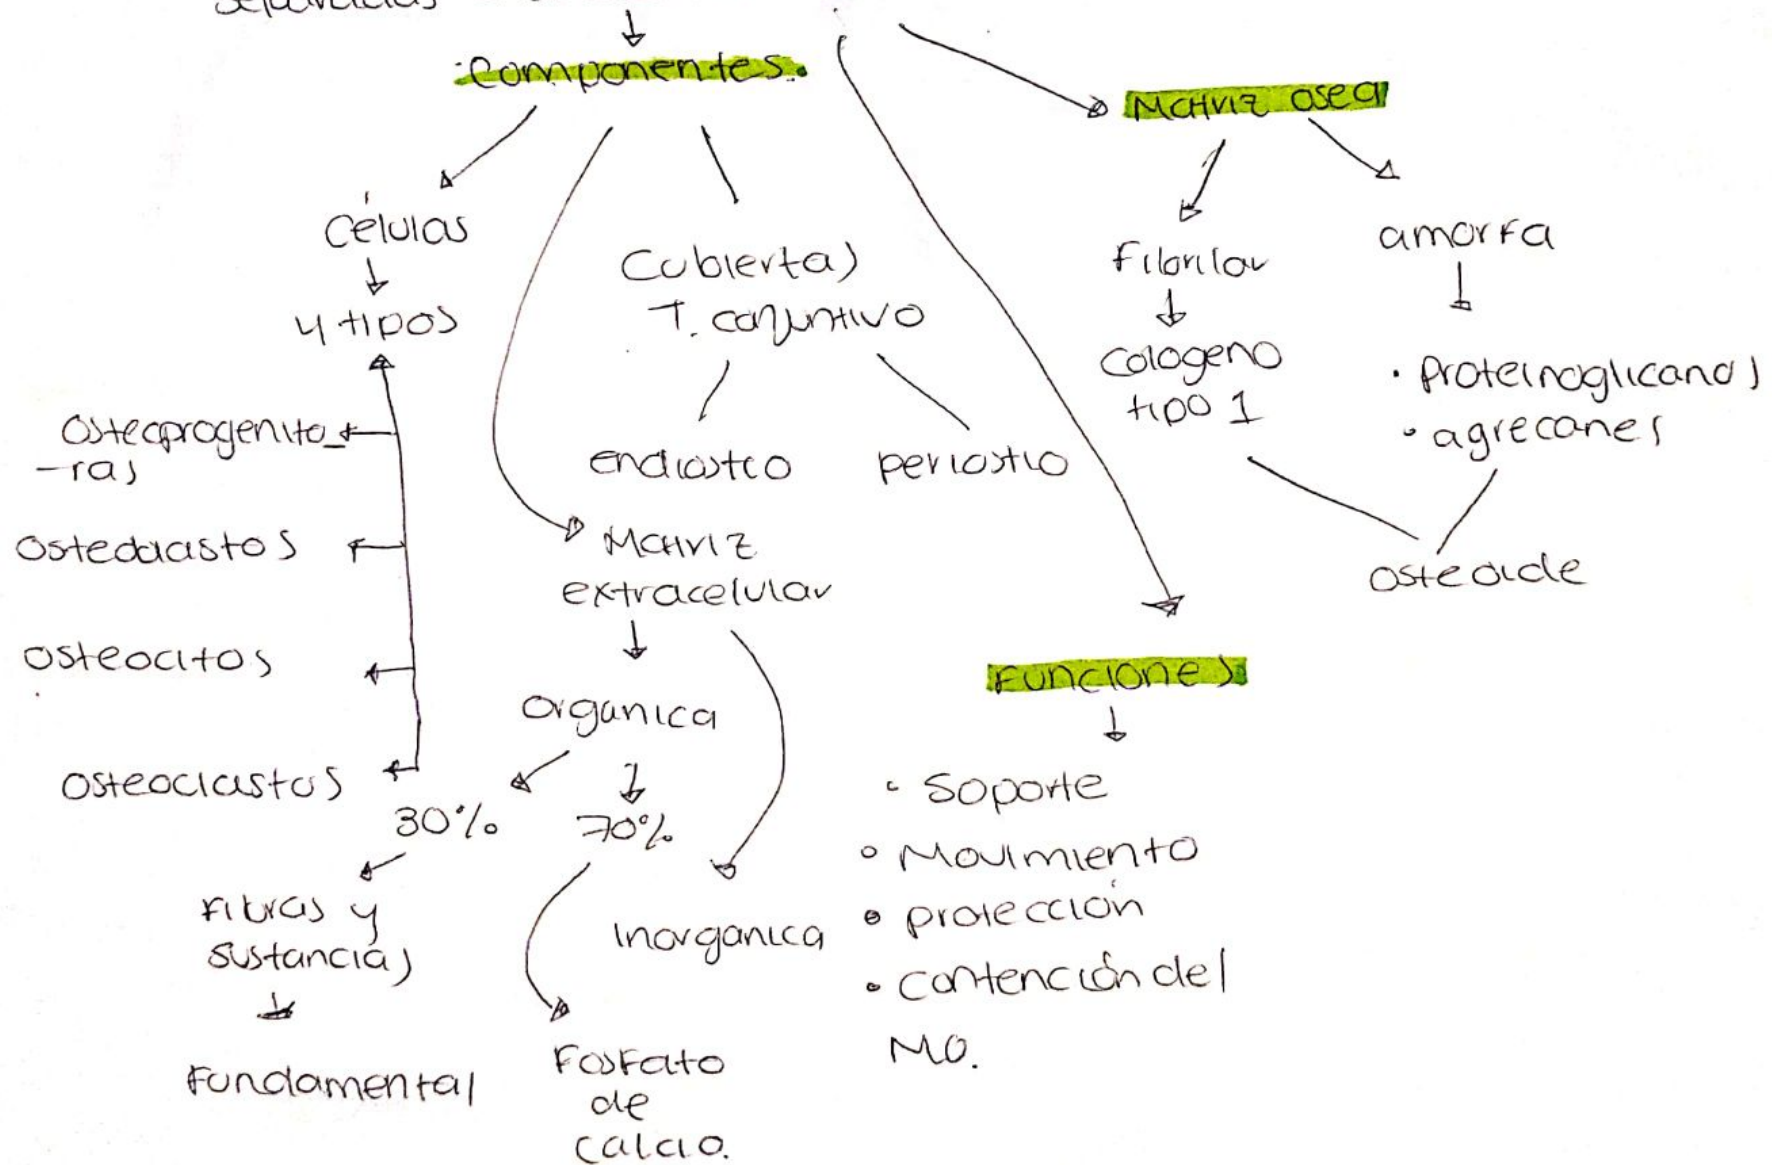 Componentes.
Matriz osea
Células
4 tipos
Osteoprogenito
-ras
Osteoblastos
Osteocitos
Osteoclastos
Cubiertas
T. conjuntivo
endiostco
periostio
Matriz
extracelular
Organica
30%
70%
Fibras y
sustancias
Fundamental
Fosfato
de
calcio.
Inorganica
Fibrilar
Cologeno
tipo 1
amorfa
• Proteinoglicanos
• agrecanes
Osteoide
Funciones
• Soporte
• Movimiento
• protección
• Contención del
MO.